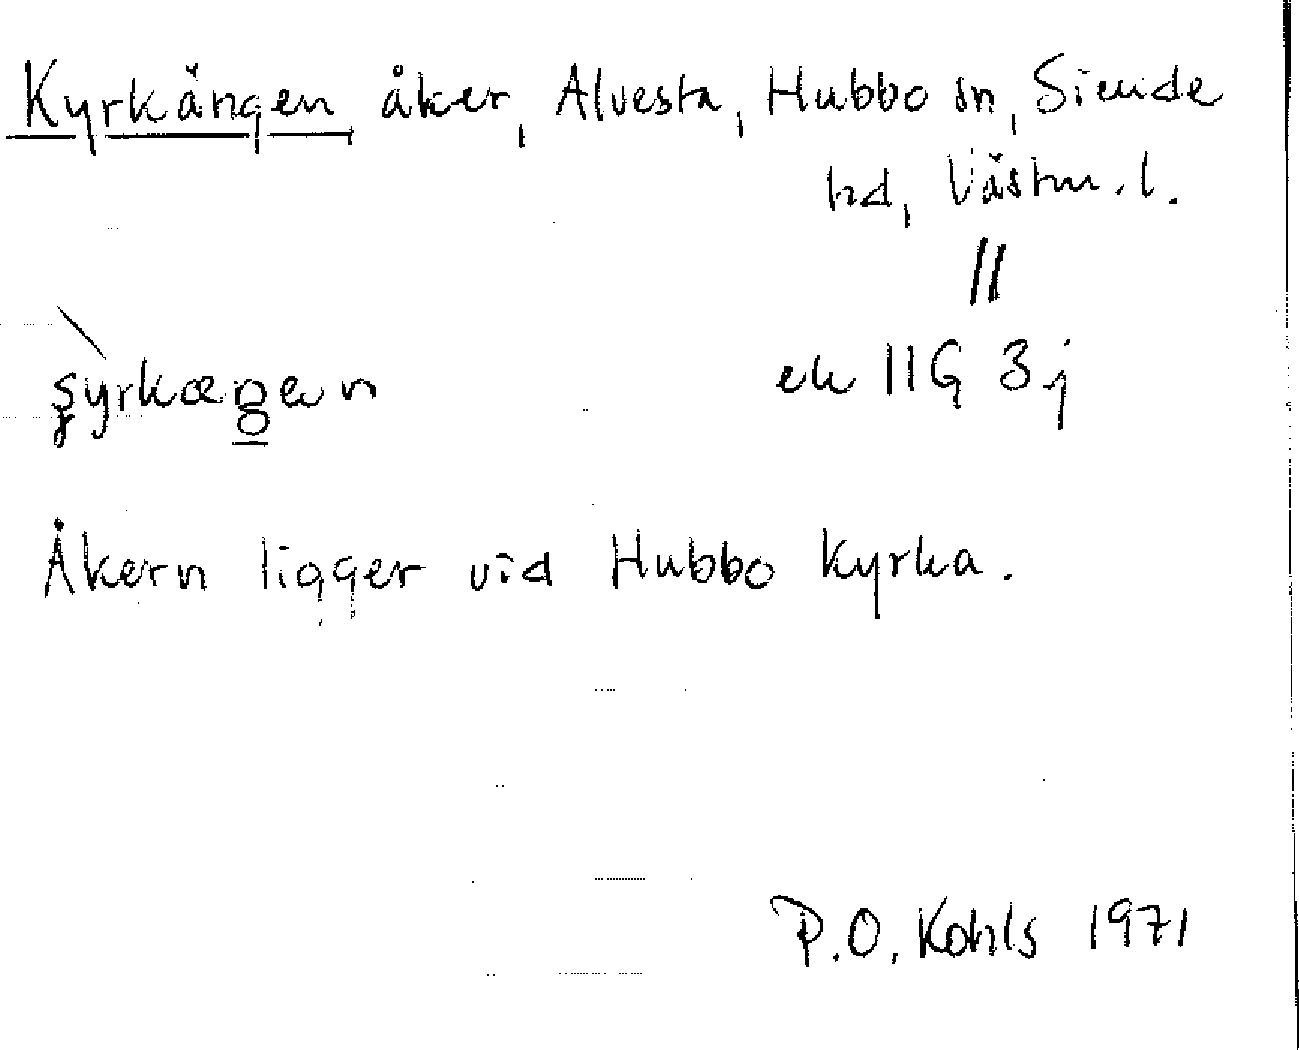 Kyrkängen åker, Alvesta, Hubbo sn, Siende
hd, Västm. l.
||
ek 11G 3j
Åkern ligger vid Hubbo kyrka.
P.O. Kohls 1971